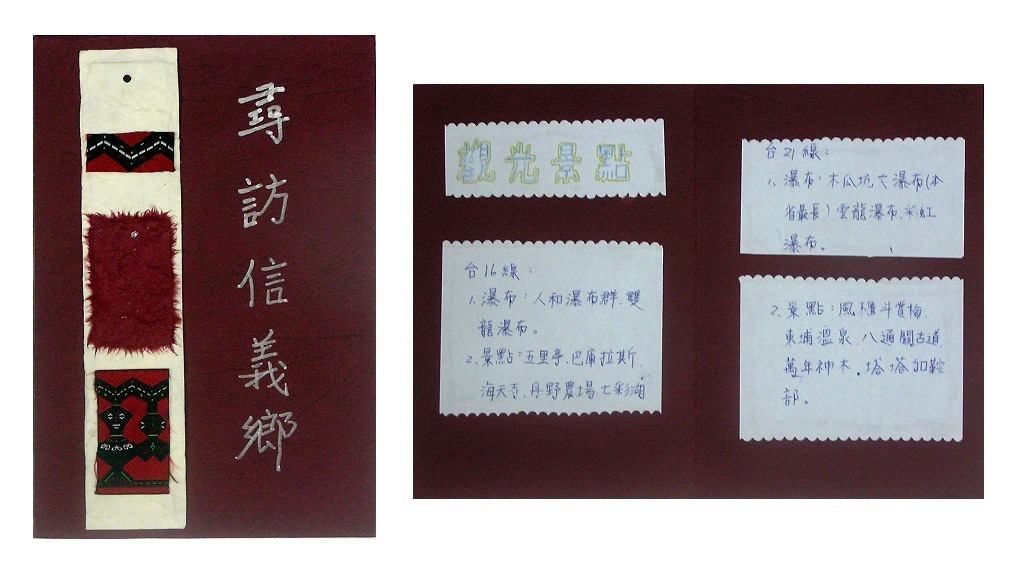 尋訪信義鄉
觀光景點
台16線：
1.瀑布：人和瀑布群、雙
龍瀑布。
2.景點：五里亭、巴庫拉斯、
海天寺、丹野農場、七彩湖
台21線：
1.瀑布：木瓜坑大瀑布(本
省最長)雲龍瀑布、彩虹
瀑布。
2.景點：風櫃斗賞梅、
東埔溫泉、八通關古道、
萬年神木、塔塔加鞍
部。